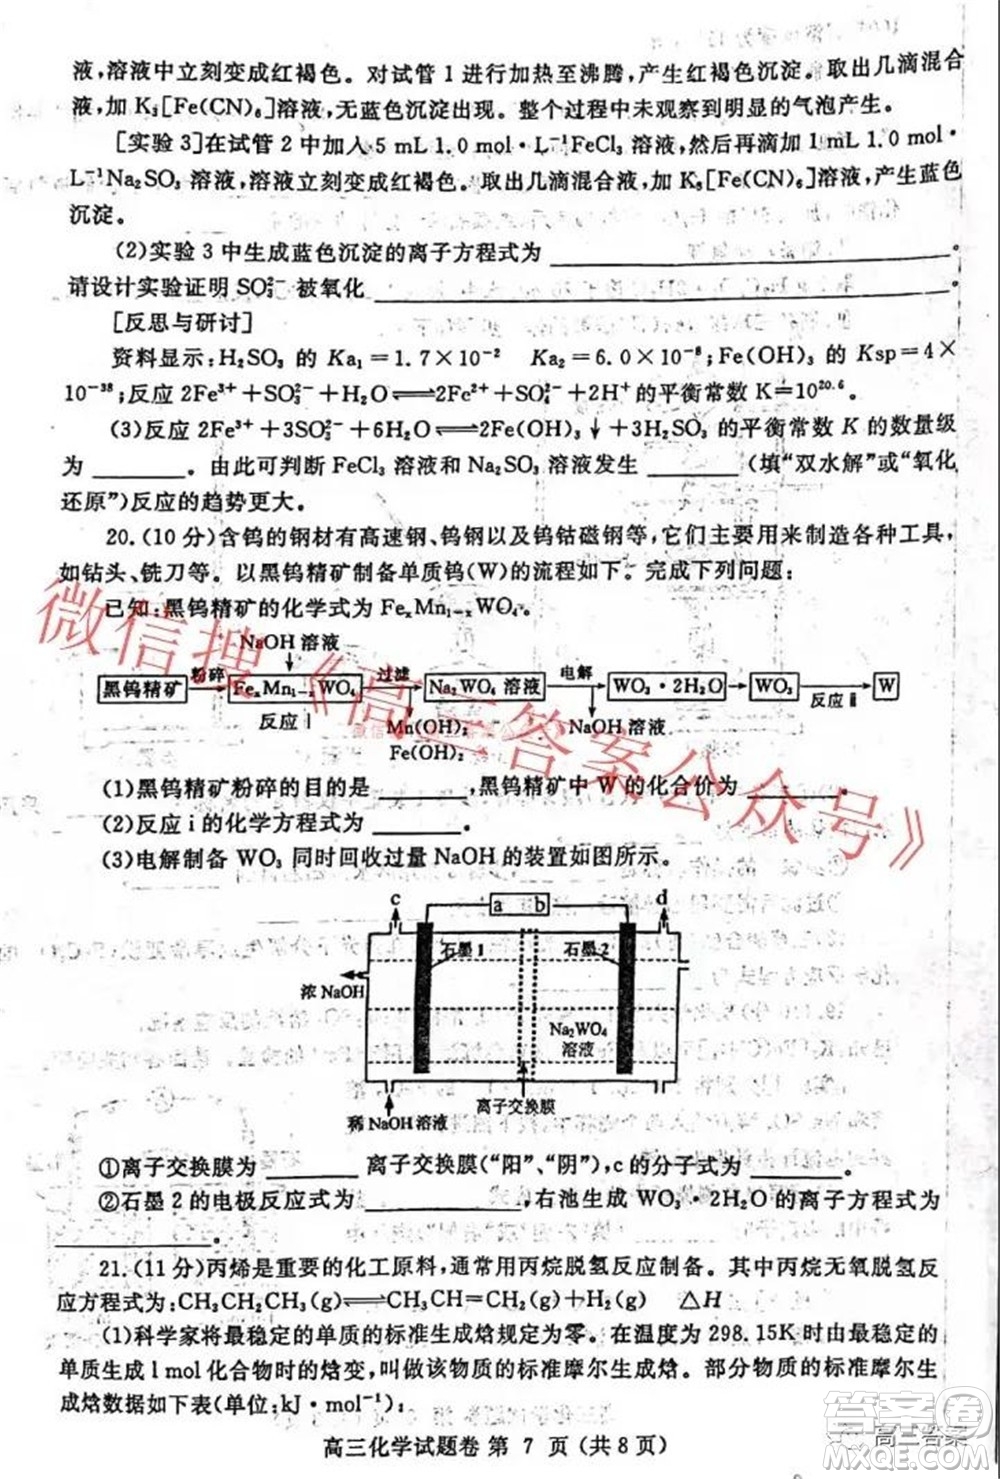 液,溶液中立刻变成红褐色。对试管1进行加热至沸腾,产生红褐色沉淀。取出几滴混合
液,加 K₃[Fe(CN)₆]溶液,无蓝色沉淀出现。整个过程中未观察到明显的气泡产生。
[实验3]在试管2中加入5 mL 1.0 mol·L⁻¹FeCl₃溶液,然后再滴加1 mL 1.0 mol·
L⁻¹Na₂SO₃溶液,溶液立刻变成红褐色。取出几滴混合液,加 K₃[Fe(CN)₆]溶液,产生蓝色
沉淀。
(2)实验3中生成蓝色沉淀的离子方程式为 。
请设计实验证明 SO₃²⁻ 被氧化 。
[反思与研讨]
资料显示:H₂SO₃ 的 Ka₁=1.7×10⁻² Ka₂=6.0×10⁻⁸;Fe(OH)₃ 的 Ksp=4×
10⁻³⁸;反应 2Fe³⁺+SO₃²⁻+H₂O⇌2Fe²⁺+SO₄²⁻+2H⁺的平衡常数 K=10²⁰·⁶。
(3)反应 2Fe³⁺+3SO₃²⁻+6H₂O⇌2Fe(OH)₃↓+3H₂SO₃ 的平衡常数 K 的数量级
为 。由此可判断 FeCl₃ 溶液和 Na₂SO₃ 溶液发生 (填“双水解”或“氧化
还原”)反应的趋势更大。
20.(10分)含钨的钢材有高速钢、钨钢以及钨钴磁钢等,它们主要用来制造各种工具,
如钻头、铣刀等。以黑钨精矿制备单质钨(W)的流程如下。完成下列问题:
已知:黑钨精矿的化学式为 FeₓMn₁₋ₓWO₄。
NaOH 溶液
黑钨精矿 粉碎 FeₓMn₁₋ₓWO₄ 过滤 Na₂WO₄ 溶液 电解 WO₃·2H₂O WO₃ 反应ⅱ W
反应ⅰ Mn(OH)₂ NaOH 溶液
Fe(OH)₂
(1)黑钨精矿粉碎的目的是 ,黑钨精矿中 W 的化合价为 。
(2)反应 i 的化学方程式为 。
(3)电解制备 WO₃ 同时回收过量 NaOH 的装置如图所示。
c a b d
石墨1 石墨2
浓 NaOH
Na₂WO₄
溶液
稀 NaOH 溶液 离子交换膜
①离子交换膜为 离子交换膜(“阳”、“阴”),c 的分子式为 。
②石墨2的电极反应式为 ,右池生成 WO₃·2H₂O 的离子方程式为
。
21.(11分)丙烯是重要的化工原料,通常用丙烷脱氢反应制备。其中丙烷无氧脱氢反
应方程式为:CH₃CH₂CH₃(g)⇌CH₃CH=CH₂(g)+H₂(g) △H
(1)科学家将最稳定的单质的标准生成焓规定为零。在温度为298.15K时由最稳定的
单质生成1 mol化合物时的焓变,叫做该物质的标准摩尔生成焓。部分物质的标准摩尔生
成焓数据如下表(单位:kJ·mol⁻¹):
高三化学试题卷 第 7 页(共8页)
微信搜《高三答案公众号》
答案圈
高三答案